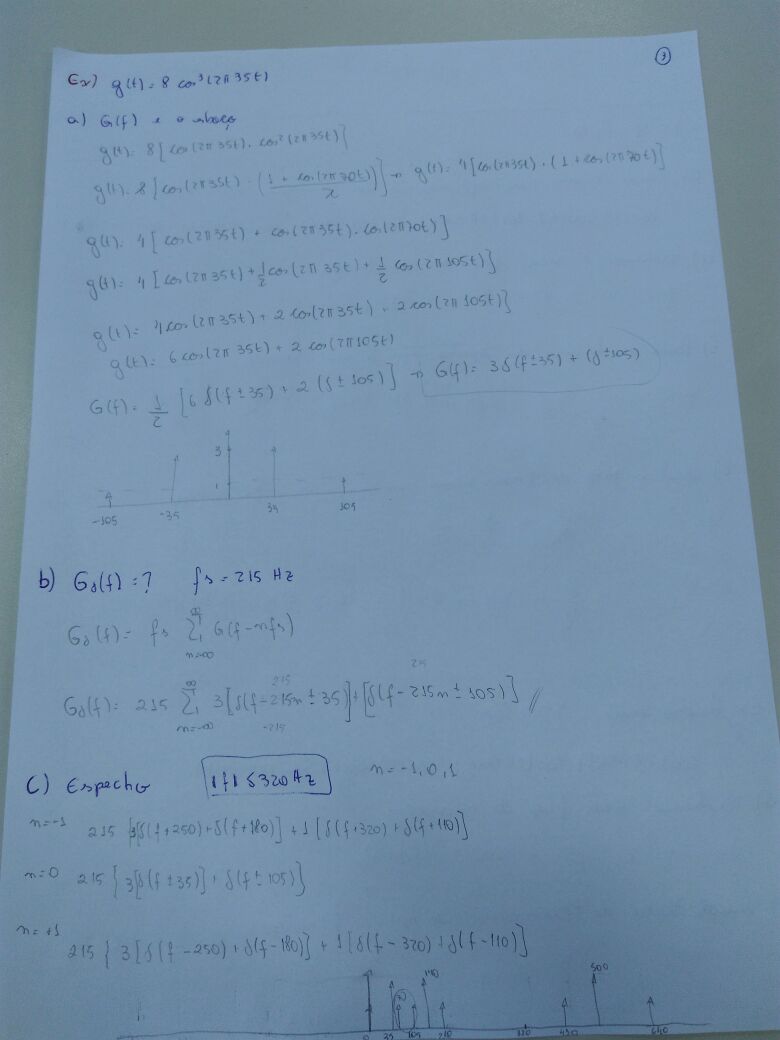 3
Ex) g(t) = 8 cos³(2π35t)
a) G(f) e o esboço
g(t) = 8[cos(2π35t) . cos²(2π35t)]
g(t) = 8[cos(2π35t) . (1 + cos(2π70t) / 2)] → g(t) = 4[cos(2π35t) . (1 + cos(2π70t)]
g(t) = 4[cos(2π35t) + cos(2π35t) . cos(2π70t)]
g(t) = 4[cos(2π35t) + 1/2 cos(2π35t) + 1/2 cos(2π105t)]
g(t) = 4cos(2π35t) + 2cos(2π35t) + 2cos(2π105t)]
g(t) = 6cos(2π35t) + 2cos(2π105t)
G(f) = 1/2 [6 δ(f ± 35) + 2 (δ ± 105)] → G(f) = 3δ(f ± 35) + (δ ± 105)
3
1
-105 -35 35 105
b) Gδ(f) = ? fs = 215 Hz
Gδ(f) = fs ∑ n=-∞ ∞ G(f - nfs)
215 215
Gδ(f) = 215 ∑ n=-∞ ∞ 3[δ(f - 215n ± 35)] + [δ(f - 215n ± 105)] //
-215
c) Espectro |f| ≤ 320 Hz n = -1, 0, 1
n=-1 215 {3[δ(f+250) + δ(f+180)] + 1[δ(f+320) + δ(f+110)]
n=0 215 {3[δ(f ± 35)] + δ(f ± 105)}
n=+1 215 {3[δ(f - 250) + δ(f - 180)] + 1[δ(f - 320) + δ(f - 110)]
500
0 35 105 210 430 640